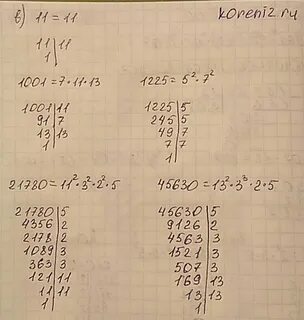 koreniz.ru
в) 11 = 11
11 | 11
1 |
1001 = 7 · 11 · 13
1001 | 11
91 | 7
13 | 13
1 |
1225 = 5² · 7²
1225 | 5
245 | 5
49 | 7
7 | 7
1 |
21780 = 11² · 3² · 2² · 5
21780 | 5
4356 | 2
2178 | 2
1089 | 3
363 | 3
121 | 11
11 | 11
1 |
45630 = 13² · 3³ · 2 · 5
45630 | 5
9126 | 2
4563 | 3
1521 | 3
507 | 3
169 | 13
13 | 13
1 |